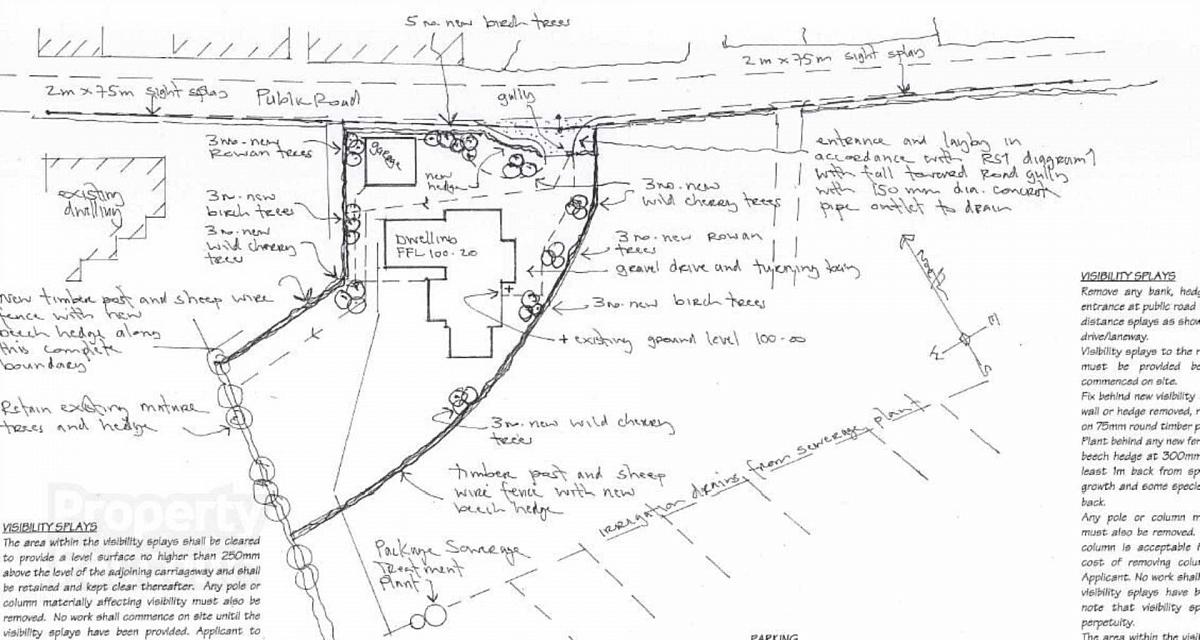 5 no. new birch trees
2m x 75m sight splay
2m x 75m sight splay
Public Road
gully
3 no. new
Rowan trees
garage
new
hedge
existing
dwelling
3 no. new
birch trees
3 no. new
wild cherry
trees
Dwelling
FFL 100.20
3 no. new
wild cherry trees
3 no. new Rowan
trees
gravel drive and turning bay
3 no. new birch trees
+ existing ground level 100.00
entrance and layby in
accordance with RS1 diagram 1
with fall toward Road gully
with 150 mm dia. concrete
pipe outlet to drain
North
new timber post and sheep wire
fence with new
beech hedge along
this complete
boundary
Retain existing mature
trees and hedge
3 no. new wild cherry
trees
timber post and sheep
wire fence with new
beech hedge
Irrigation drains from sewerage plant
Package Sewerage
Treatment
Plant
Property
VISIBILITY SPLAYS
The area within the visibility splays shall be cleared
to provide a level surface no higher than 250mm
above the level of the adjoining carriageway and shall
be retained and kept clear thereafter. Any pole or
column materially affecting visibility must also be
removed. No work shall commence on site unitil the
visibility splays have been provided. Applicant to
PARKING
VISIBILITY SPLAYS
Remove any bank, hedg
entrance at public road
distance splays as show
drive/laneway.
Visibility splays to the r
must be provided be
commenced on site.
Fix behind new visibility
wall or hedge removed, n
on 75mm round timber p
Plant behind any new fer
beech hedge at 300mm
least 1m back from sp
growth and some specie
back.
Any pole or column m
must also be removed.
column is acceptable
cost of removing colu
Applicant. No work shall
visibility splays have b
note that visibility sp
perpetuity.
The area within the visi